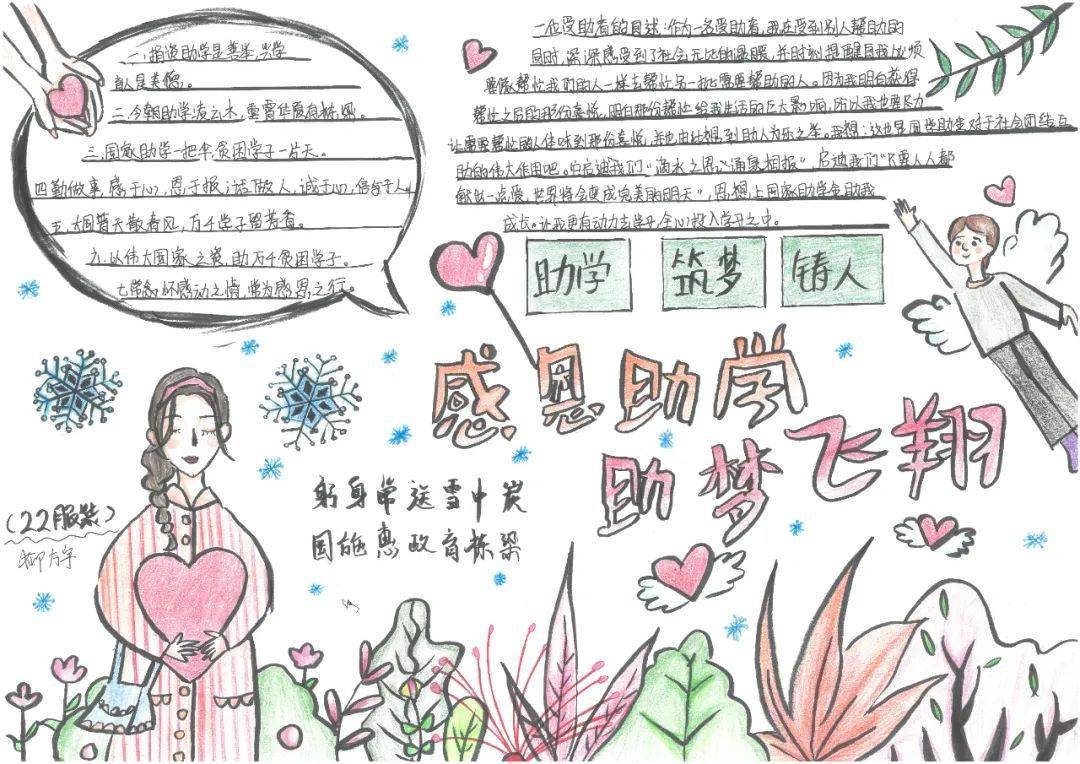 一.捐资助学是善举,兴学
献是美德。
二.今朝助学凌云木,重霄华夏有栋梁。
三.国家助学一把伞,贫困学子一片天。
四勤做事,感于心,恩于报,话做人,诚于心,信于人
五.大国筹天散春风,万千学子留芳香。
六.以伟大国家之资,助万千贫困学子。
七.常怀感动之情,常为感恩之行。
一位受助者的自述:作为一名受助者,我在受到别人帮助的
同时,深深感受到了社会无比的温暖,并时刻提醒自我必须
要像帮忙我们的人一样去帮忙另一批需要帮助的人。因为我明白获得
帮忙之后的那份喜悦,明白那份帮忙给我生活的巨大影响,所以我也要尽力
让需要帮忙的人体味到那份喜悦,并也由此想到助人为乐之举。我想:这也是国家助贫对于社会团结互
助的伟大作用吧。它启迪我们“滴水之恩,涌泉相报”,启迪我们“只要人人都
献出一点爱,世界将会变成完美的明天”,思想上国家助学金助我
成长。让我更有动力去学习,全心投入学习之中。
助学 筑梦 铸人
感恩助学
助梦飞翔
躬身常送雪中炭
国施惠政育栋梁
(22服装)